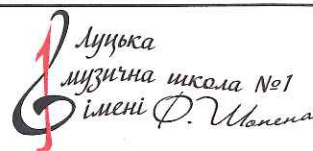 Луцька
музична школа №1
імені Ф. Шопена